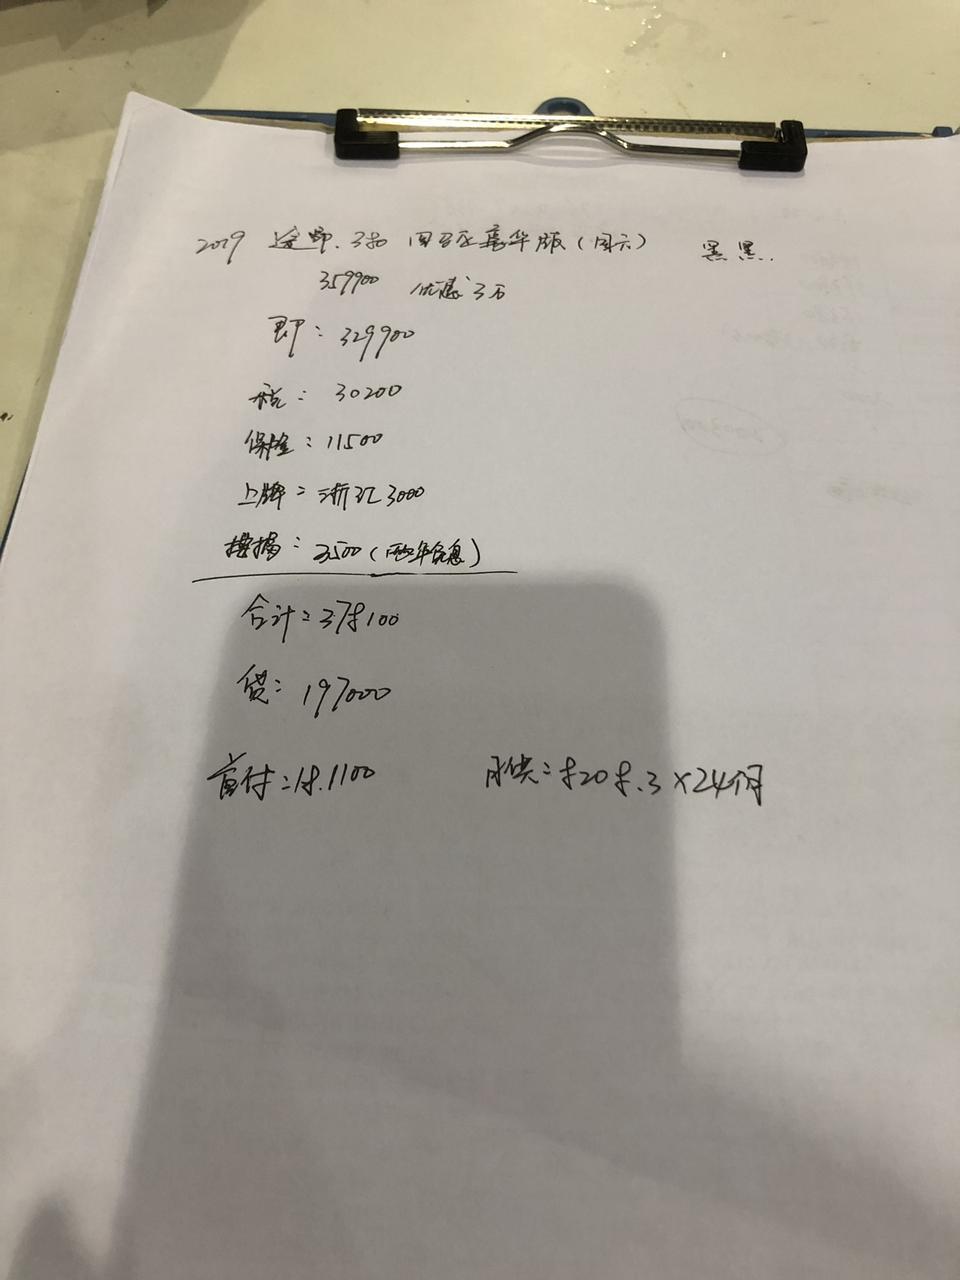 2019 途昂.380 四驱豪华版(国六) 黑黑.
359900 优惠3万
即: 329900
税: 30200
保险: 11500
上牌: 浙江3000
按揭: 3500(两年免息)
合计: 378100
贷: 197000
首付: 18.1100 月供: 8208.3×24个月